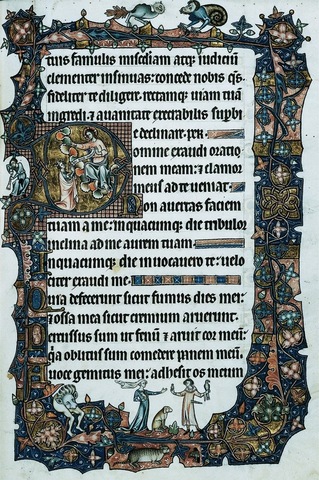 tuis famulis misediam atq; iudiciū
clementer insinuas: concede nobis q̄s
fideliter te diligere. rectamque uiam tuā
ingredi: & a uanitate execrabilis supbie
declinare. per.
Domine exaudi oratio
nem meam: & clamor
meus ad te ueniat.
Non auertas faciem
tuam a me: in quacumque die tribulor
inclina ad me aurem tuam.
In quacumque die inuocauero te: uelo
citer exaudi me.
Quia defecerunt sicut fumus dies mei:
& ossa mea sicut cremium aruerunt.
Percussus sum ut fenū & aruit cor meū:
qa oblitus sum comedere panem meū.
A uoce gemitus mei: adhesit os meum